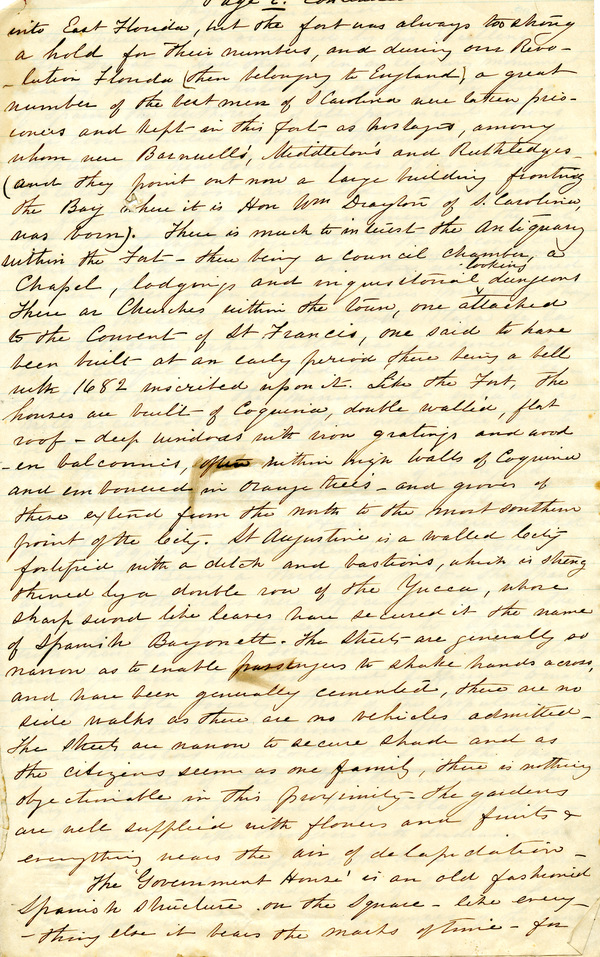 Page 2.
into East Florida, but the fort was always too strong
a hold for their numbers, and during our Revo-
-lution Florida (then belonging to England) a great
number of the best men of S Carolina were taken pris-
oners and kept in this fort as hostages, among
whom were Barnwell's, Middleton's and Ruthledges_
(and they point out now a large building fronting
the Bay where it is Hon Wm Drayton of S. Carolina,
was born). There is much to interest the Antiquary
within the Fort - there being a council chamber, a
Chapel, lodgings and inquisitorial looking dungeons
There are Churches within the town, one attached
to the Convent of St Francis, one said to have
been built at an early period there being a bell
with 1682 inscribed upon it. Like the Fort, the
houses are built of Coquina, double walled, flat
roof - deep windows with iron gratings and wood
-en balconnies, often within high walls of Coquina
and embowered in orange trees - and groves of
these extend from the north to the most southern
point of the City. St Augustine is a walled City
fortified with a ditch and bastions, which is streng
thened by a double row of the Yucca, whose
sharp sword like leaves have secured it the name
of Spanish Bayonett. The streets are generally so
narrow as to enable passengers to shake hands across,
and have been generally cemented, there are no
side walks as there are no vehicles admitted_
The streets are narrow to secure shade and as
the citizens seem as one family, there is nothing
objectionable in this proximity - The gardens
are well supplied with flowers and fruits &
everything wears the air of dalapidation_
The 'Government House' is an old fashioned
Spanish structure on the Square - like every-
-thing else it bears the marks of time - for